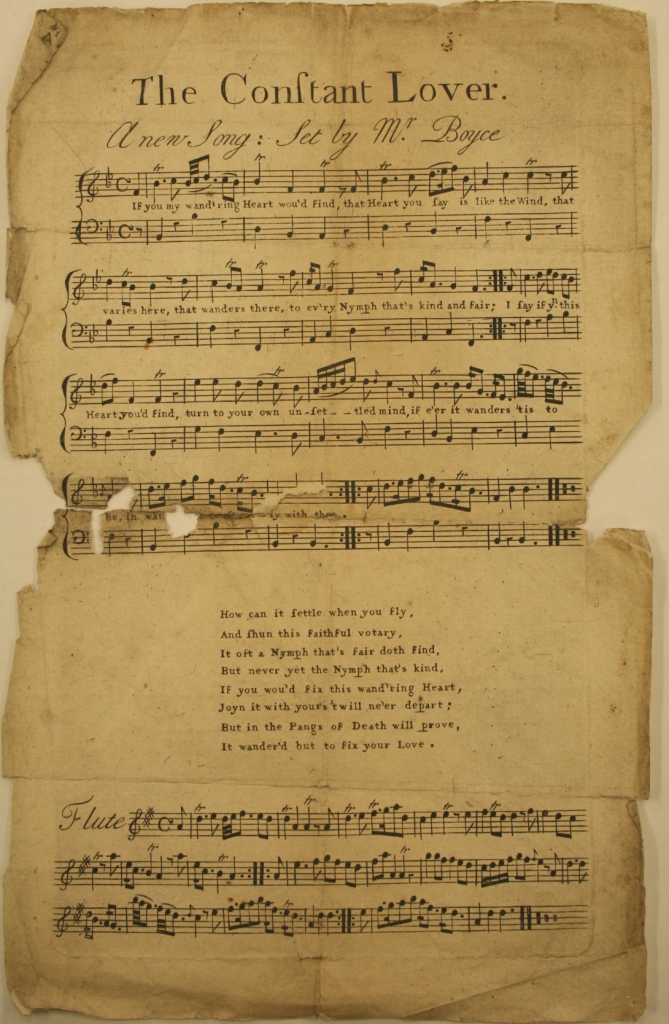 The Conſtant Lover.
A new Song: Set by Mr. Boyce
If you my wand'ring Heart wou'd find, that Heart you ſay is like the Wind, that
varies here, that wanders there, to ev'ry Nymph that's kind and fair; I ſay if yͤ this
Heart you'd find, turn to your own un-ſet--tled mind, if e'er it wanders 'tis to
be, in wan ly with thee.
How can it ſettle when you fly,
And ſhun this faithful votary,
It oft a Nymph that's fair doth find,
But never yet the Nymph that's kind,
If you wou'd fix this wand'ring Heart,
Joyn it with yours 'twill ne'er depart;
But in the Pangs of Death will prove,
It wander'd but to fix your Love.
Flute